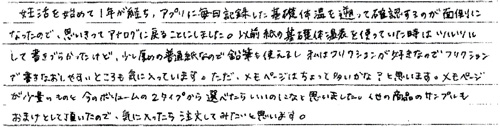 妊活を始めて1年が経ち、アプリに毎日記録した基礎体温を遡って確認するのが面倒に
なったので、思いきってアナログに戻ることにしました。以前紙の基礎体温表を使っていた時はツルツル
して書きづらかったけど、少し厚めの普通紙なので鉛筆も使えるし 私はフリクションが好きなのでフリクション
で書きなおしやすいところも気に入っています。ただ、メモページはちょって多いかな?と思います。メモページ
が少量のものと今のボリュームの2タイプから選べたらいいのになと思いました。他の商品のサンプルも
おまけとして頂いたので、気に入ったら注文してみたいと思います。